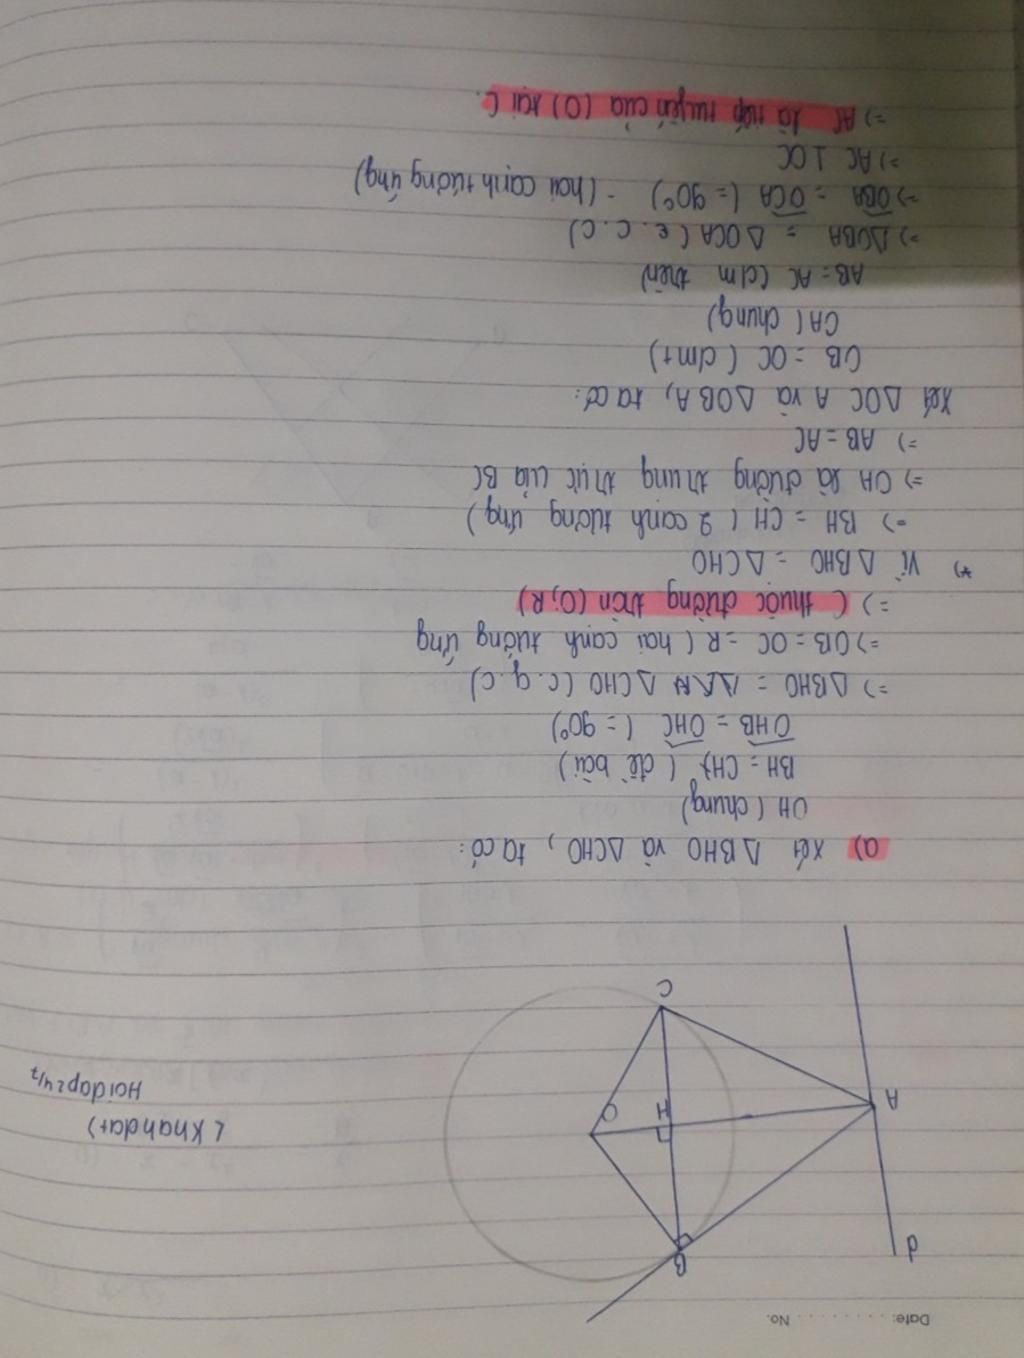 Date: ........ No.
d
B
A
H
O
C
( Khahdat)
Hoidap24/7
a) Xét Δ BHO và Δ CHO, ta có:
OH (chung)
BH = CH (đề bài)
OHB = OHC (= 90°)
=> Δ BHO = Δ CHO (c.g.c)
=> OB = OC = R (hai cạnh tướng ứng
=> C thuộc đường tròn (O;R)
*) Vì Δ BHO = Δ CHO
=> BH = CH (2 cạnh tương ứng)
=> OA là đường trung trực của BC
=> AB = AC
Xét Δ OCA và Δ OBA, ta có:
OB = OC (cmt)
OA (chung)
AB = AC (cm trên)
=> Δ OBA = Δ OCA (c.c.c)
=> OBA = OCA (= 90°) - (hai cạnh tướng ứng)
=> AC ⊥ OC
=> AC là tiếp tuyến của (O) tại C.